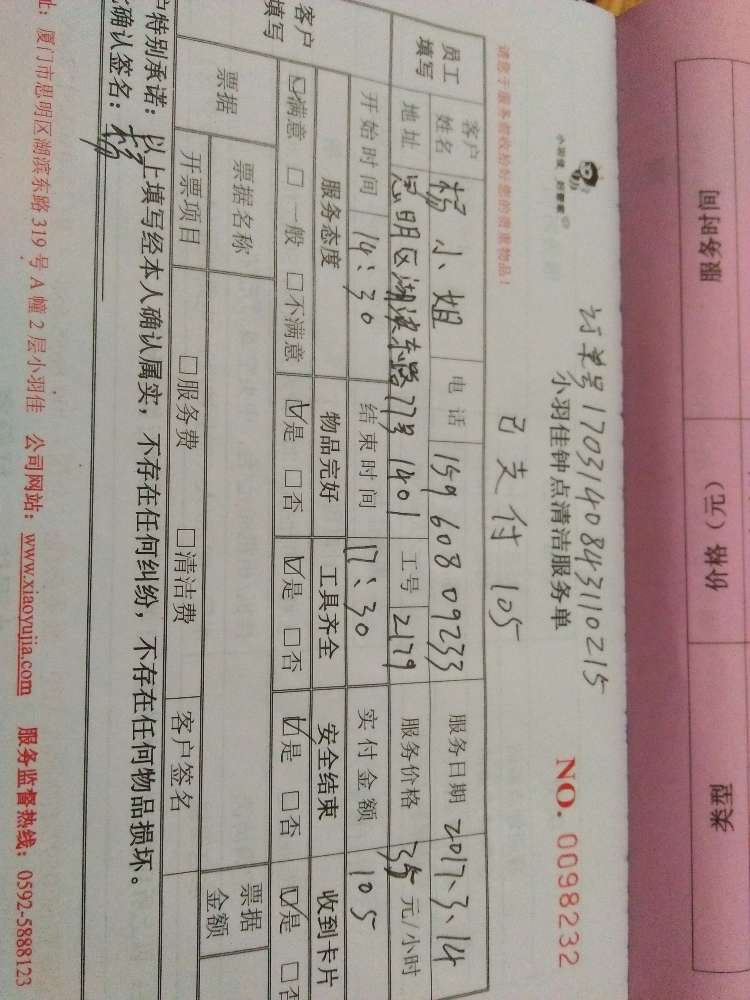 服务时间 价格（元） 类型
订单号17031408431​10215
小羽佳 好管家
小羽佳钟点清洁服务单 NO. 0098232
请您于服务前收拾好您的贵重物品！
已支付 105
员工填写 客户姓名 杨小姐 电话 159 608 09233 服务日期 2017.3.14
地址 思明区湖滨东路77号1401 工号 2129 服务价格 35 元/小时
开始时间 14:30 结束时间 17:30 实付金额 105
客户填写 服务态度 物品完好 工具齐全 安全结束 收到卡片
☑满意 □一般 □不满意 ☑是 □否 ☑是 □否 ☑是 □否 ☑是 □否
票据 票据名称 票据金额
开票项目 □服务费 □清洁费 客户签名
户特别承诺：以上填写经本人确认属实，不存在任何纠纷，不存在任何物品损坏。
确认签名：杨
址：厦门市思明区湖滨东路 319 号 A 幢 2 层小羽佳 公司网站：www.xiaoyujia.com 服务监督热线：0592-5888123